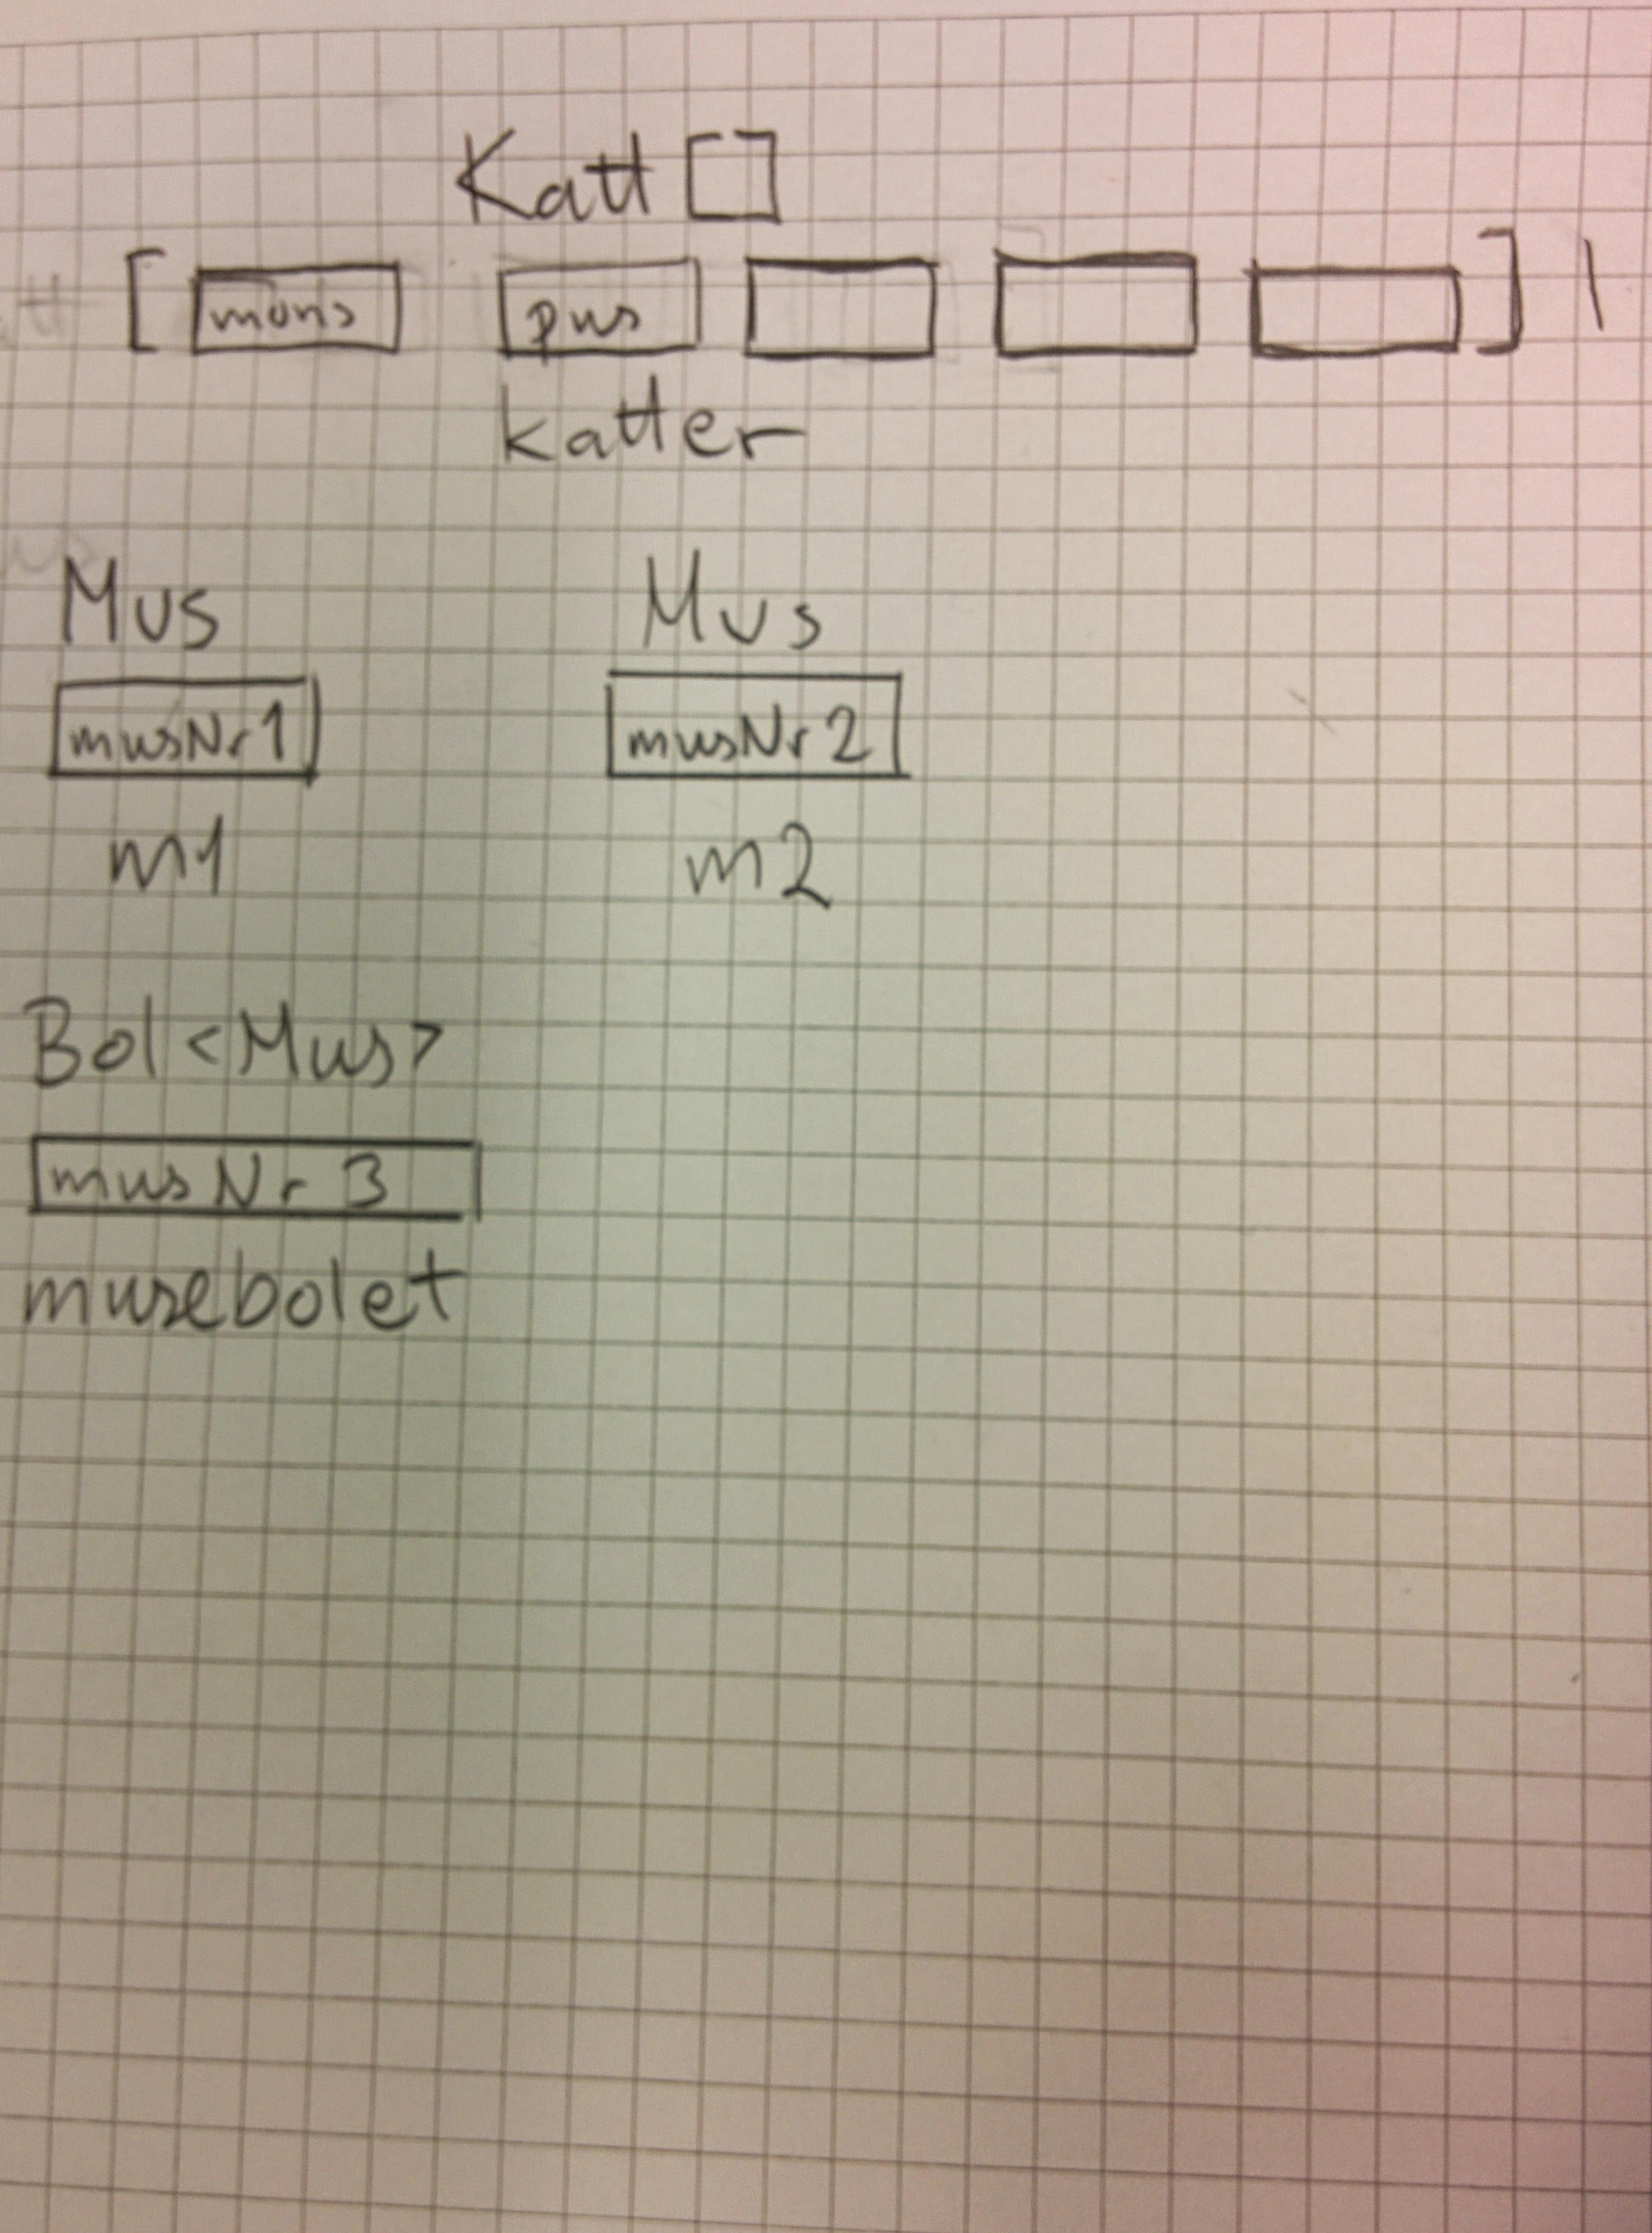 Katt []
[ mons pus ]
katter
Mus Mus
musNr1 musNr2
m1 m2
Bol<Mus>
musNr3
musebolet